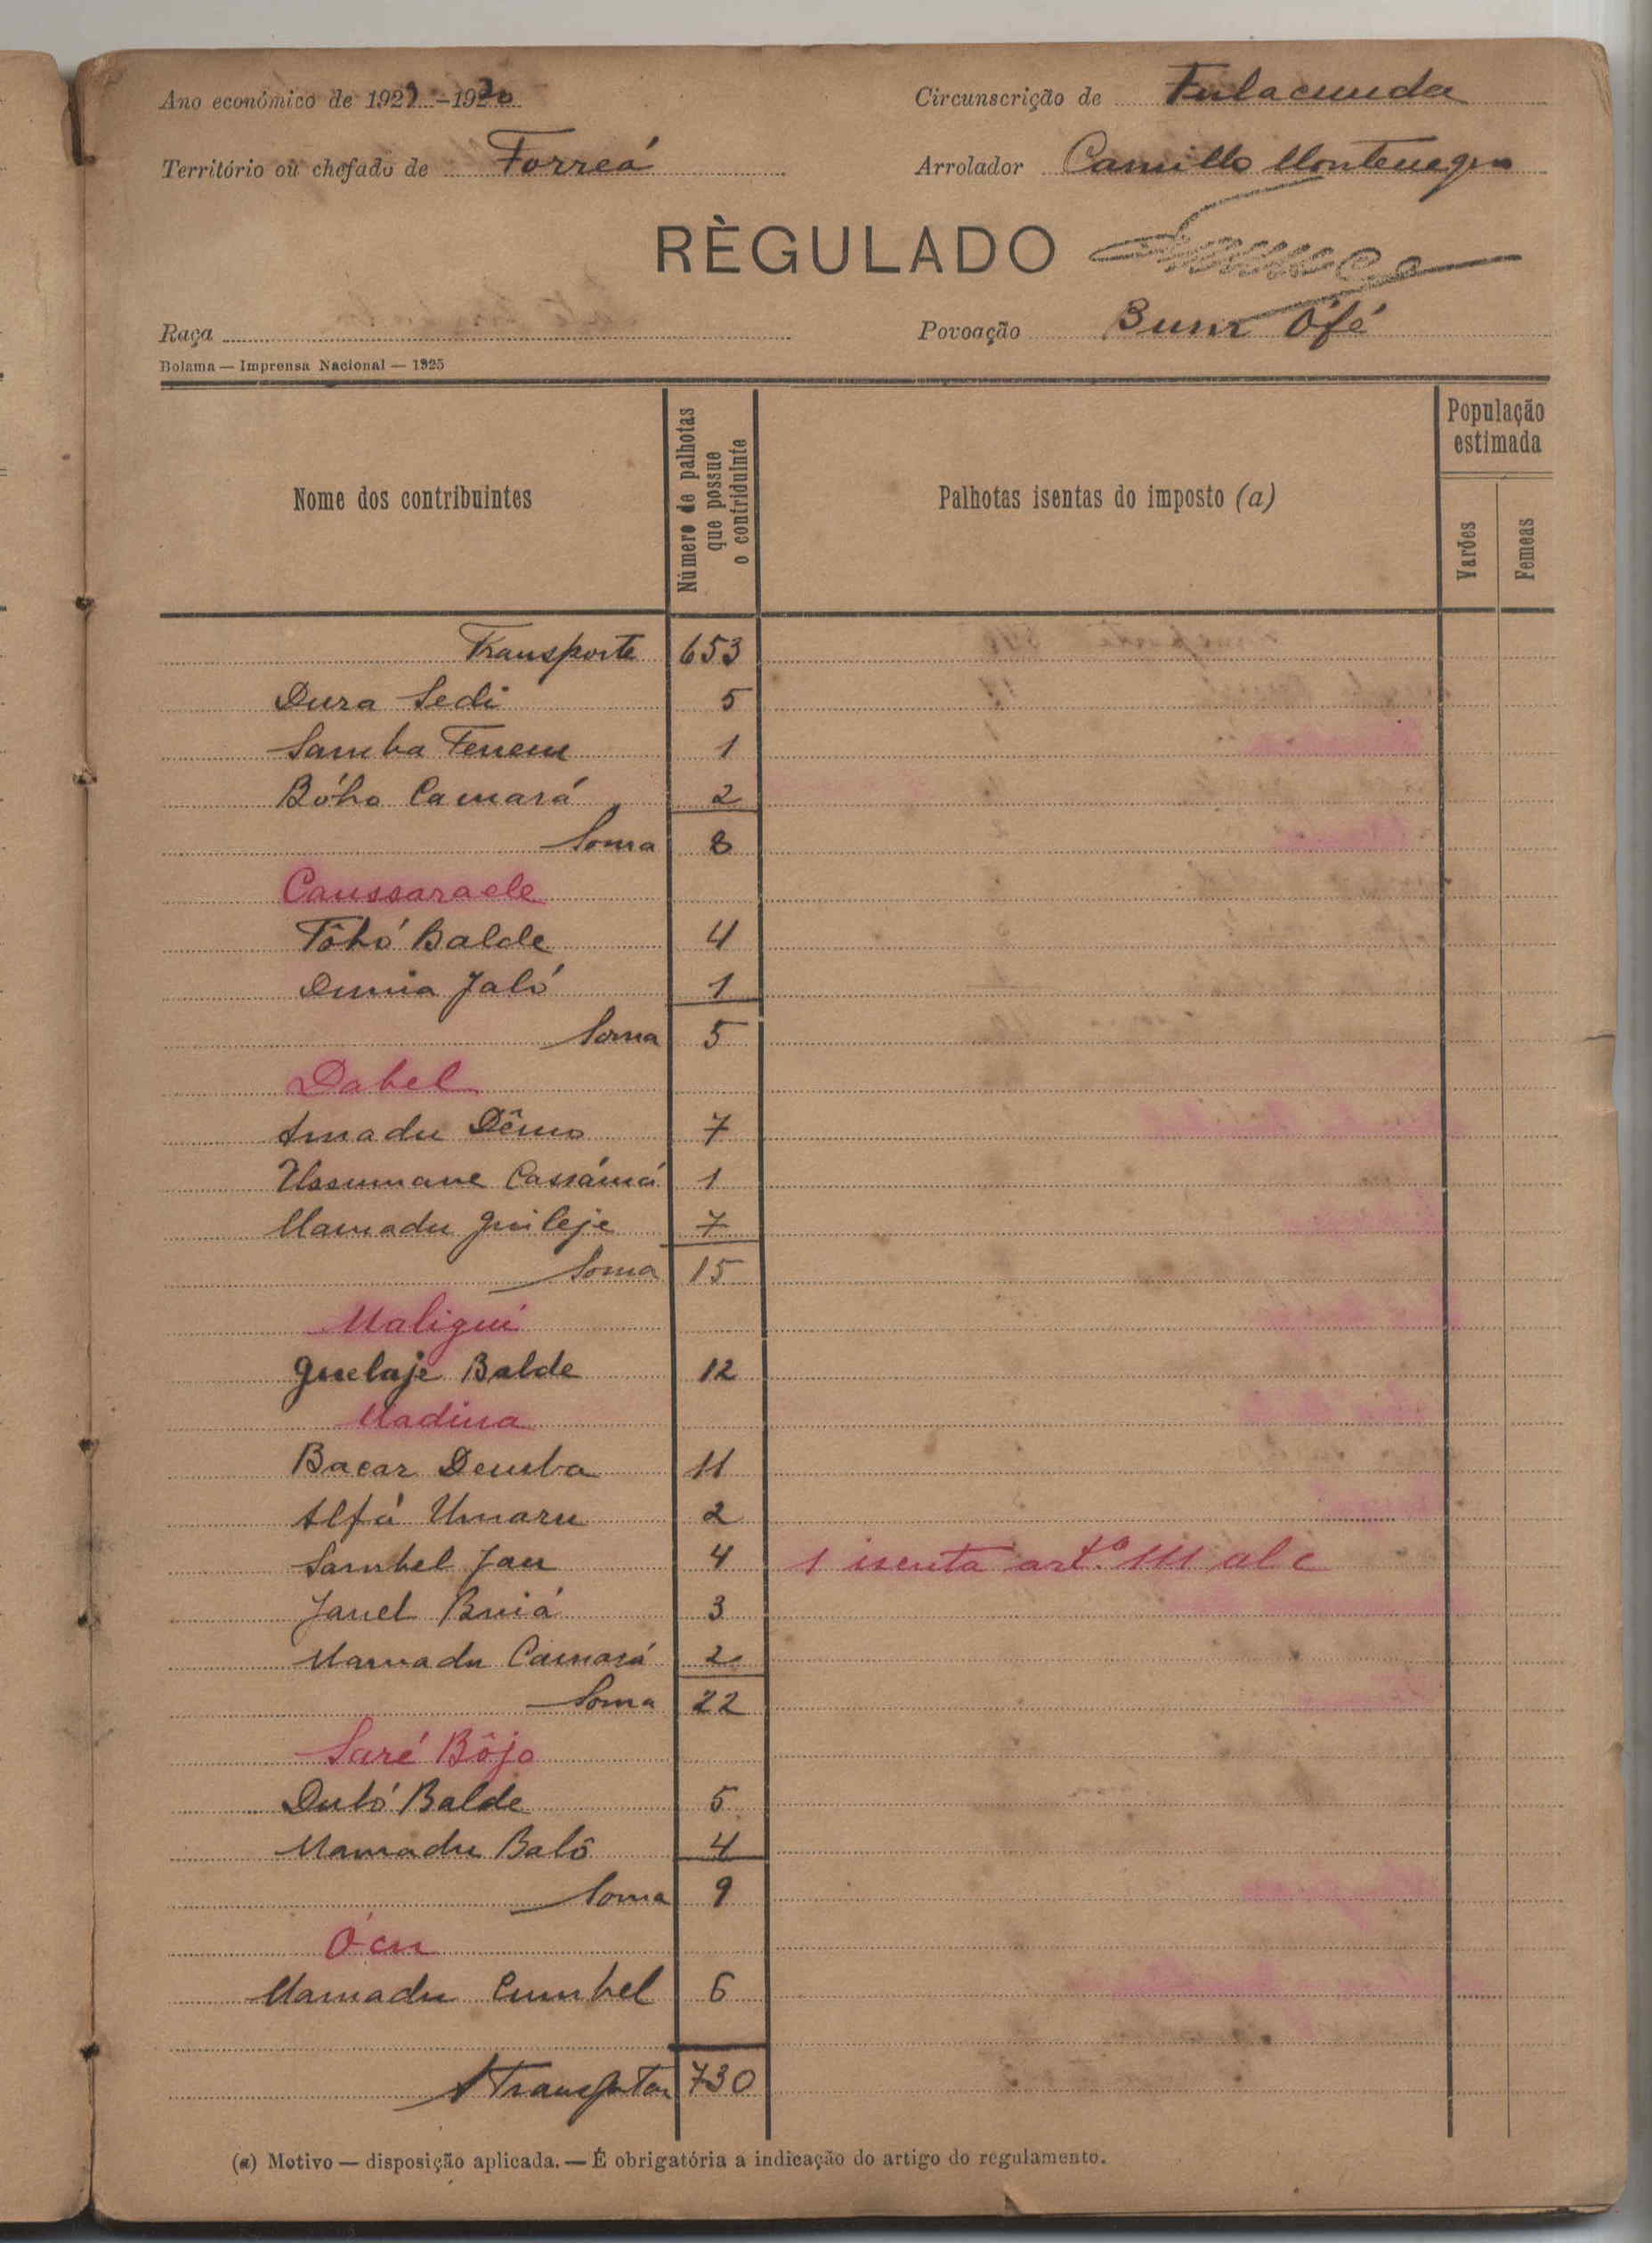 Ano económico de 1929-1930
Circunscrição de Fulacunda
Território ou chefado de Forreá
Arrolador Camillo Montenegro
RÈGULADO
Raça
Povoação Buur Ófé
Bolama — Imprensa Nacional — 1925
Nome dos contribuintes
Número de palhotas que possue o contriduinte
Palhotas isentas do imposto (a)
População estimada
Varões
Femeas
Transporte 653
Dura Sedi 5
Samba Tenem 1
Bóbo Camará 2
Soma 8
Caussaraele
Tôbó Balde 4
Dumia Jaló 1
Soma 5
Dabel
Amadu Dêmo 7
Ussumane Cassámá 1
Mamadu Guileje 7
Soma 15
Maligui
Guelaje Balde 12
Madina
Bacar Demba 11
Alfá Umaru 2
Sambel Jau 4 1 isenta artº 111 al c
Janel Buiá 3
Mamadu Camará 2
Soma 22
Saré Bôjo
Dubó Balde 5
Mamadu Balô 4
Soma 9
Ócu
Mamadu Cumbel 6
A Transportar 730
(a) Motivo — disposição aplicada. — É obrigatória a indicação do artigo do regulamento.